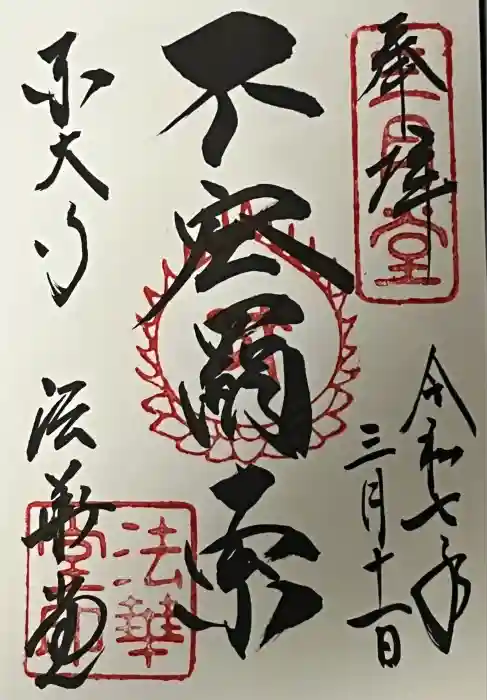 奉拝
令和七年
三月十一日
不空羂索
東大寺 法華堂
三月堂
法華
堂印